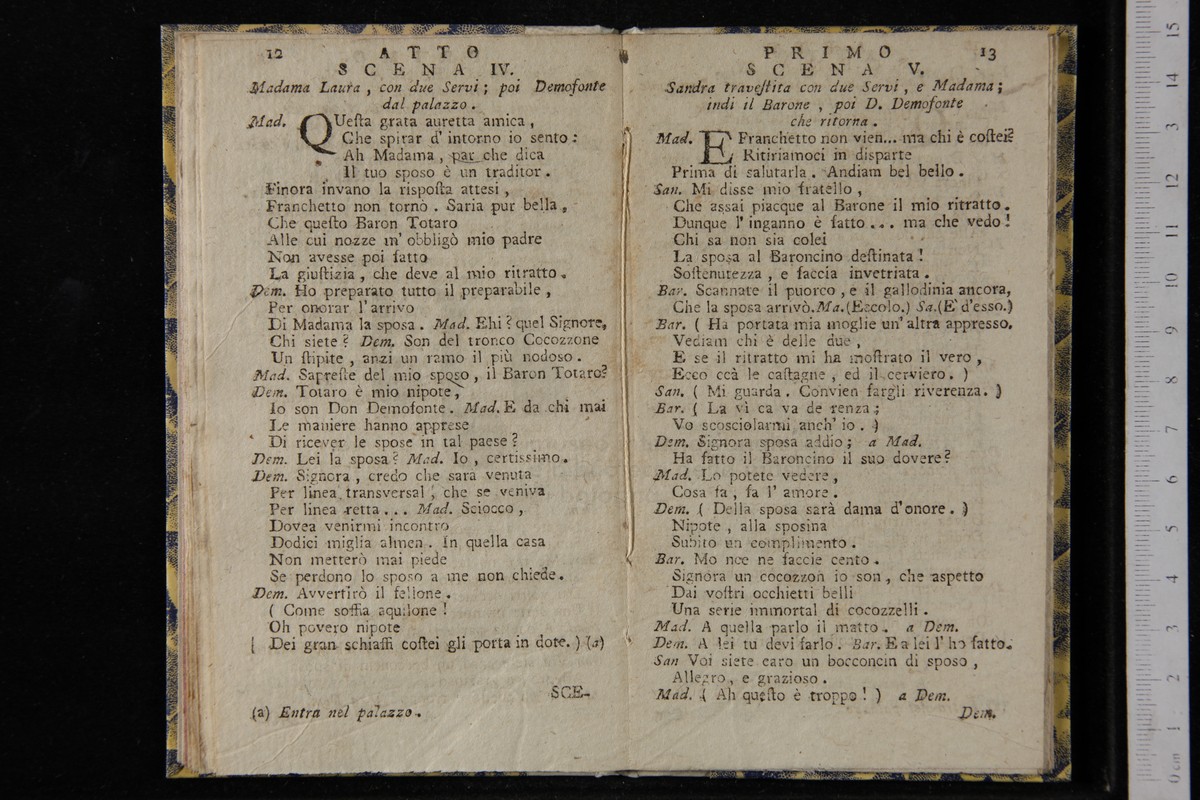 12 ATTO
SCENA IV.
Madama Laura , con due Servi ; poi Demofonte
dal palazzo .
Mad. QUeſta grata auretta amica ,
Che spirar d' intorno io sento :
Ah Madama , par che dica
Il tuo sposo è un traditor .
Finora invano la rispoſta attesi ,
Franchetto non tornò . Saria pur bella ,
Che queſto Baron Totaro
Alle cui nozze m' obbligò mio padre
Non avesse poi fatto
La giuſtizia , che deve al mio ritratto .
Dem. Ho preparato tutto il preparabile ,
Per onorar l' arrivo
Di Madama la sposa . Mad. Ehi ? quel Signore,
Chi siete ? Dem. Son del tronco Cocozzone
Un ſtipite , anzi un ramo il più nodoso .
Mad. Sapreſte del mio sposo , il Baron Totaro?
Dem. Totaro è mio nipote ,
Io son Don Demofonte . Mad. E da chi mai
Le maniere hanno apprese
Di ricever le spose in tal paese ?
Dem. Lei la sposa ? Mad. Io , certissimo .
Dem. Signora , credo che sarà venuta
Per linea transversal ; che se veniva
Per linea retta . . . Mad. Sciocco ,
Dovea venirmi incontro
Dodici miglia almen . In quella casa
Non metterò mai piede
Se perdono lo sposo a me non chiede .
Dem. Avvertirò il fellone .
( Come soffia aquilone !
Oh povero nipote
Dei gran schiaffi coſtei gli porta in dote . ) (a)
SCE-
(a) Entra nel palazzo .
PRIMO 13
SCENA V.
Sandra traveſtita con due Servi , e Madama ;
indi il Barone , poi D. Demofonte
che ritorna .
Mad. E Franchetto non vien... ma chi è coſtei?
Ritiriamoci in disparte
Prima di salutarla . Andiam bel bello .
San. Mi disse mio fratello ,
Che assai piacque al Barone il mio ritratto .
Dunque l' inganno è fatto . . . ma che vedo !
Chi sa non sia colei
La sposa al Baroncino deſtinata !
Soſtenutezza , e faccia invetriata .
Bar. Scannate il puorco , e il gallodinia ancora,
Che la sposa arrivò. Ma.(Eccolo.) Sa.(E' d'esso.)
Bar. ( Ha portata mia moglie un' altra appresso,
Vediam chi è delle due ,
E se il ritratto mi ha moſtrato il vero ,
Ecco ccà le caſtagne , ed il cerviero . )
San. ( Mi guarda . Convien fargli riverenza . )
Bar. ( La vi ca va de renza ;
Vo scosciolarmi anch' io . )
Dem. Signora sposa addio ; a Mad.
Ha fatto il Baroncino il suo dovere ?
Mad. Lo potete vedere ,
Cosa fa , fa l' amore .
Dem. ( Della sposa sarà dama d'onore . )
Nipote , alla sposina
Subito un complimento .
Bar. Mo nce ne faccie cento .
Signora un cocozzon io son , che aspetto
Dai voſtri occhietti belli
Una serie immortal di cocozzelli .
Mad. A quella parlo il matto . a Dem.
Dem. A lei tu devi farlo . Bar. E a lei l' ho fatto.
San Voi siete caro un bocconcin di sposo ,
Allegro , e grazioso .
Mad. ( Ah queſto è troppo ! ) a Dem.
Dem.
0 cm 1 2 3 4 5 6 7 8 9 10 11 12 13 14 15